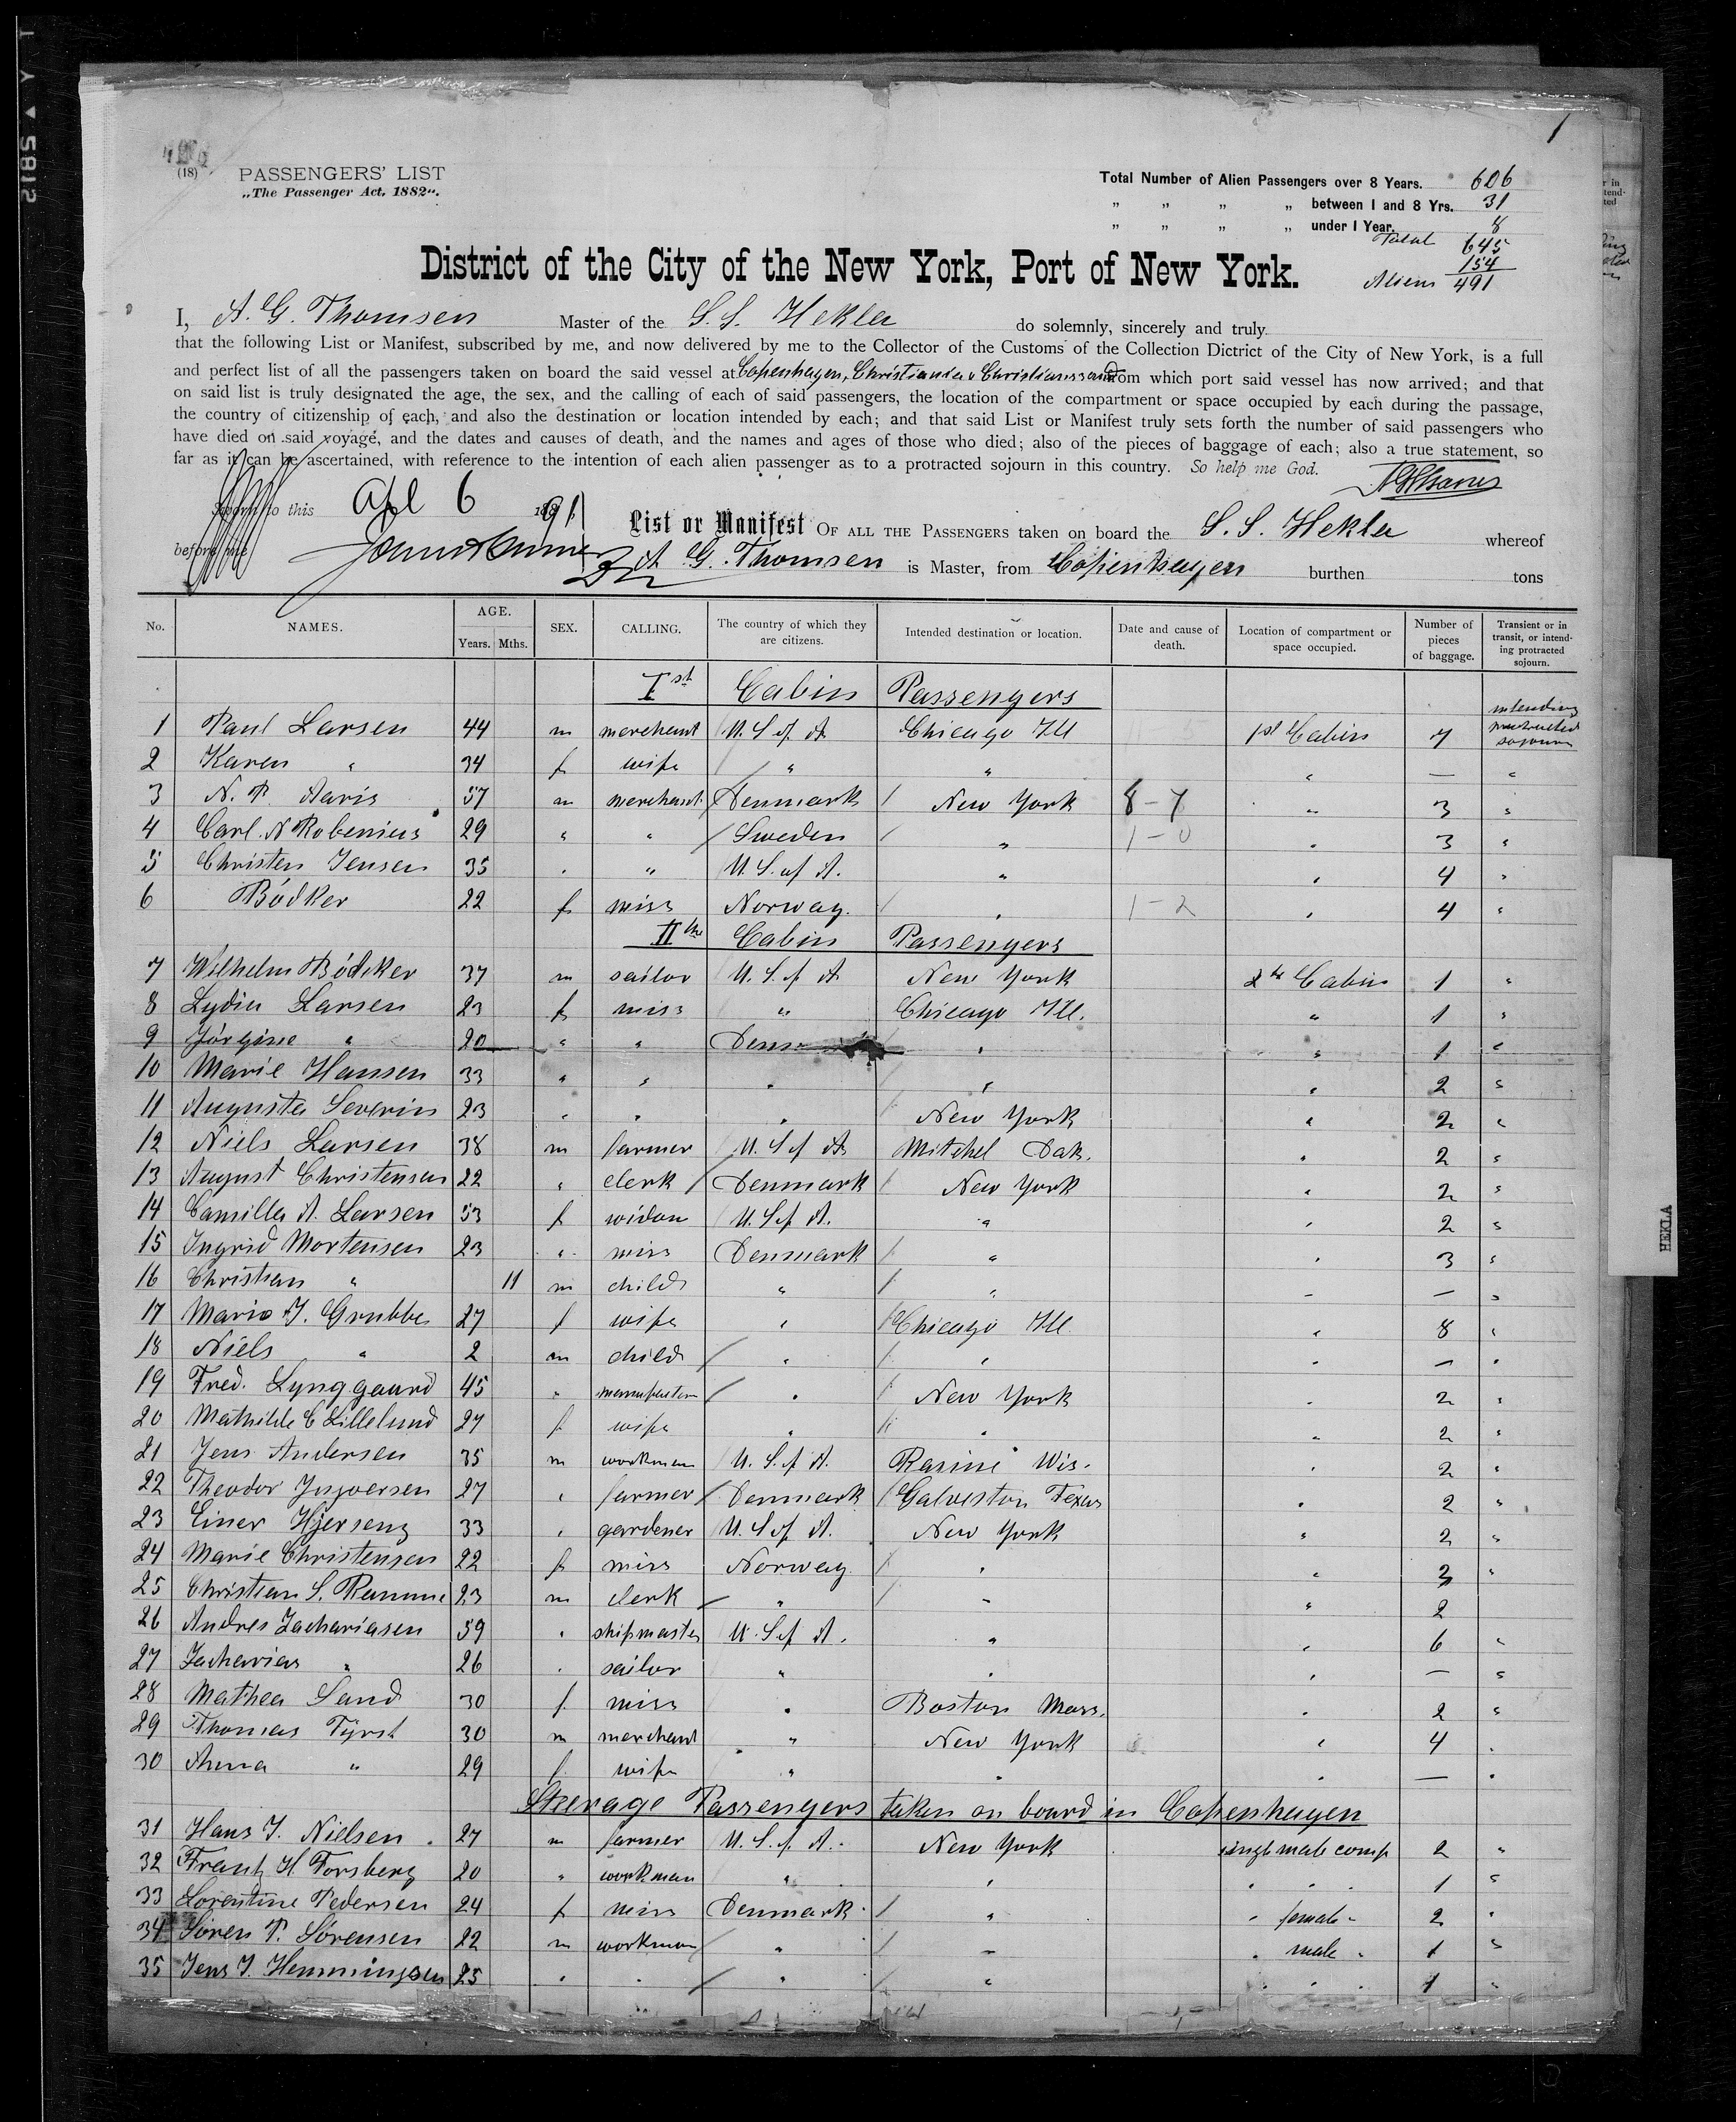 T Y ▲ 5812
1
(18)
PASSENGERS' LIST
„The Passenger Act, 1882".
Total Number of Alien Passengers over 8 Years. 606
„ „ „ „ between 1 and 8 Yrs. 31
„ „ „ „ under 1 Year. 8
Total 645
154
Aliens 491
District of the City of the New York, Port of New York.
I, A. G. Thomsen Master of the S. S. Hekla do solemnly, sincerely and truly
that the following List or Manifest, subscribed by me, and now delivered by me to the Collector of the Customs of the Collection Dictrict of the City of New York, is a full
and perfect list of all the passengers taken on board the said vessel at Copenhagen, Christiania & Christianssand from which port said vessel has now arrived; and that
on said list is truly designated the age, the sex, and the calling of each of said passengers, the location of the compartment or space occupied by each during the passage,
the country of citizenship of each, and also the destination or location intended by each; and that said List or Manifest truly sets forth the number of said passengers who
have died on said voyage, and the dates and causes of death, and the names and ages of those who died; also of the pieces of baggage of each; also a true statement, so
far as it can be ascertained, with reference to the intention of each alien passenger as to a protracted sojourn in this country. So help me God.
Sworn to this Apl 6 1891
before me
List or Manifest OF ALL THE PASSENGERS taken on board the S. S. Hekla whereof
A. G. Thomsen is Master, from Copenhagen burthen tons
No. NAMES. AGE. Years. Mths. SEX. CALLING. The country of which they are citizens. Intended destination or location. Date and cause of death. Location of compartment or space occupied. Number of pieces of baggage. Transient or in transit, or intending protracted sojourn.
Ist Cabin Passengers
1 Paul Larsen 44 m merchant U. S. of A. Chicago Ill 1st Cabin 7 intending protracted sojourn
2 Karen " 34 f wife " " " — "
3 N. P. Aaris 57 m merchant Denmark New York 8-7 " 3 "
4 Carl N Robenius 29 " " Sweden " 1-0 " 3 "
5 Christen Jensen 35 " " U. S. of A. " " 4 "
6 Bödker 22 f miss Norway " 1-2 " 4 "
II Cabin Passengers
7 Wilhelm Bödker 37 m sailor U. S. of A. New York 2 Cabin 1 "
8 Lydia Larsen 23 f miss " Chicago Ill. " 1 "
9 Jörgine " 20 " " Denm " " 1 "
10 Marie Hansen 33 " " " " " 2 "
11 Augusta Severin 23 " " " New York " 2 "
12 Niels Larsen 38 m farmer U. S. of A. Mitchel Dak. " 2 "
13 August Christensen 22 " clerk Denmark New York " 2 "
14 Camilla A. Larsen 53 f widow U. S. of A. " " 2 "
15 Ingrid Mortensen 23 " miss Denmark " " 3 "
16 Christian " 11 m child " " " — "
17 Marie J. Grubbe 27 f wife " Chicago Ill. " 8 "
18 Niels " 2 m child " " " — "
19 Fred. Lynggaard 45 " " New York " 2 "
20 Mathilde C Lillelund 27 f wife " " " 2 "
21 Jens Andersen 35 m workman U. S. of A. Rasine Wis. " 2 "
22 Theodor Ingversen 27 " farmer Denmark Galveston Texas " 2 "
23 Einer 33 " gardener U. S. of A. New York " 2 "
24 Marie Christensen 22 f miss Norway " " 2 "
25 Christian S. Ramme 23 m clerk " " " 2
26 Andres Zachariasen 59 " shipmaster U. S. of A. " " 6 "
27 Zacharias " 26 " sailor " " " — "
28 Mathea Sand 30 f miss " Boston Mass. " 2 "
29 Thomas Fyrst 30 m merchant " New York " 4 "
30 Anna " 29 f wife " " " — "
Steerage Passengers taken on board in Copenhagen
31 Hans J. Nielsen 27 m farmer U. S. of A. New York single male comp 2 "
32 Frantz H Forsberg 20 " workman " " " " " 1 "
33 Lorentine Pedersen 24 f miss Denmark " " female " 2 "
34 Sören P. Sörensen 22 m workman " " " male " 1 "
35 Jens J. Hemmingsen 25 " " " " " " " 1 "
HEKLA